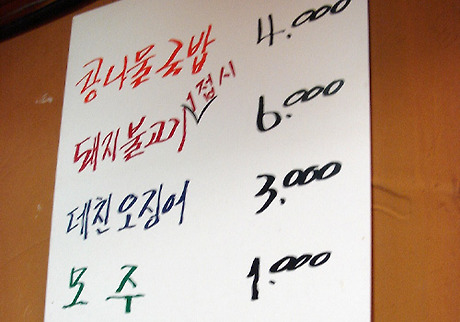 콩나물국밥 4.000
돼지불고기 1접시 6.000
데친오징어 3.000
모주 1.000